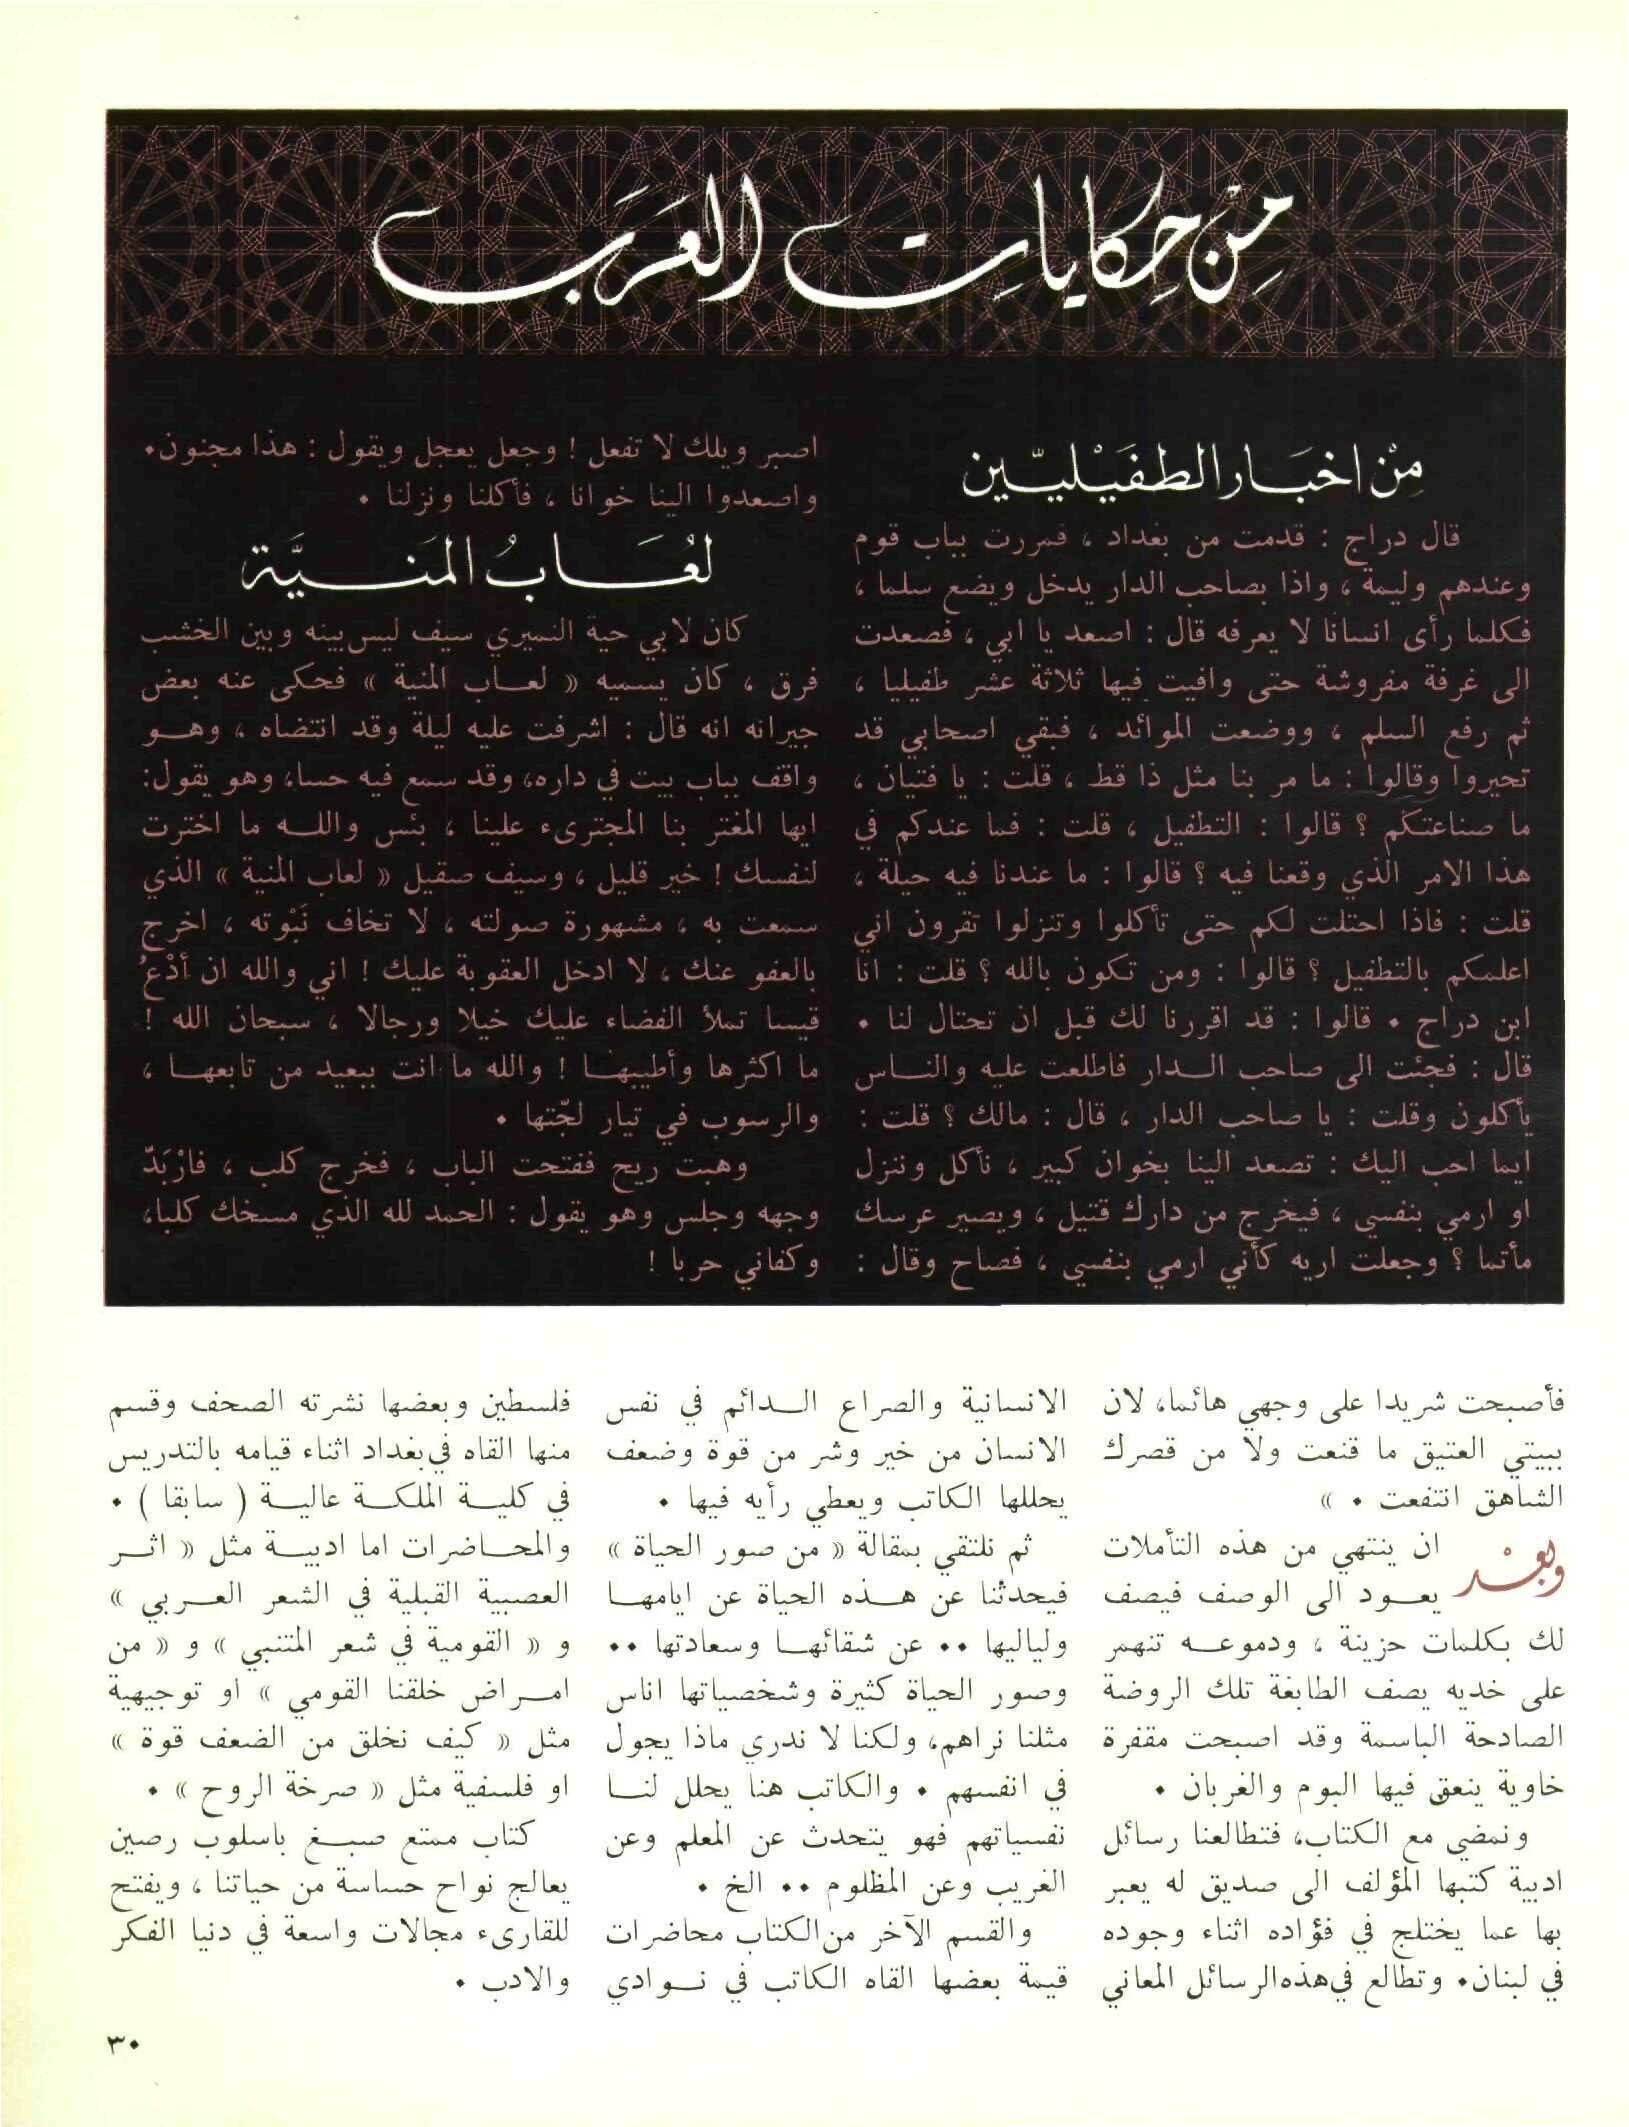 من حكايات العرب
من اخبار الطفيليين
قال دراج : قدمت من بغداد ، فمررت بباب قوم
وعندهم وليمة ، واذا بصاحب الدار يدخل ويضع سلما ،
فكلما رأى انسانا لا يعرفه قال : اصعد يا ابي ، فصعدت
الى غرفة مفروشة حتى وافيت فيها ثلاثة عشر طفيليا ،
ثم رفع السلم ، ووضعت الموائد ، فبقي اصحابي قد
تحيروا وقالوا : ما مر بنا مثل ذا قط ، قلت : يا فتيان ،
ما صناعتكم ؟ قالوا : التطفيل ، قلت : فما عندكم في
هذا الامر الذي وقعنا فيه ؟ قالوا : ما عندنا فيه حيلة ،
قلت : فاذا احتلت لكم حتى تأكلوا وتنزلوا تقرون اني
اعلمكم بالتطفيل ؟ قالوا : ومن تكون بالله ؟ قلت : انا
ابن دراج . قالوا : قد اقررنا لك قبل ان تحتال لنا .
قال : فجئت الى صاحب الدار فاطلعت عليه والناس
يأكلون وقلت : يا صاحب الدار ، قال : مالك ؟ قلت :
ايما احب اليك : تصعد الينا بخوان كبير ، نأكل وننزل
او ارمي بنفسي ، فيخرج من دارك قتيل ، ويصير عرسك
مأتما ؟ وجعلت اريه كأني ارمي بنفسي ، فصاح وقال :
اصبر ويلك لا تفعل ! وجعل يعجل ويقول : هذا مجنون.
واصعدوا الينا خوانا ، فأكلنا ونزلنا .
لُعَابُ المَنيَّة
كان لابي حية النميري سيف ليس بينه وبين الخشب
فرق ، كان يسميه « لعاب المنية » فحكى عنه بعض
جيرانه انه قال : اشرفت عليه ليلة وقد انتضاه ، وهو
واقف بباب بيت في داره، وقد سمع فيه حسا، وهو يقول:
ايها المغتر بنا المجترىء علينا ، بئس والله ما اخترت
لنفسك ! خير قليل ، وسيف صقيل « لعاب المنية » الذي
سمعت به ، مشهورة صولته ، لا تخاف نَبْوته ، اخرج
بالعفو عنك ، لا ادخل العقوبة عليك ! اني والله ان أدْعُ
قيسا تملأ الفضاء عليك خيلا ورجالا ، سبحان الله !
ما اكثرها وأطيبها ! والله ما انت ببعيد من تابعها ،
والرسوب في تيار لجّتها .
وهبت ريح ففتحت الباب ، فخرج كلب ، فارْبَدّ
وجهه وجلس وهو يقول : الحمد لله الذي مسخك كلبا،
وكفاني حربا !
فأصبحت شريدا على وجهي هائما، لان
ببيتي العتيق ما قنعت ولا من قصرك
الشاهق انتفعت . »
وبعْد ان ينتهي من هذه التأملات
يعود الى الوصف فيصف
لك بكلمات حزينة ، ودموعه تنهمر
على خديه يصف الطابغة تلك الروضة
الصادحة الباسمة وقد اصبحت مقفرة
خاوية ينعق فيها البوم والغربان .
ونمضي مع الكتاب، فتطالعنا رسائل
ادبية كتبها المؤلف الى صديق له يعبر
بها عما يختلج في فؤاده اثناء وجوده
في لبنان. وتطالع في هذه الرسائل المعاني
الانسانية والصراع الدائم في نفس
الانسان من خير وشر من قوة وضعف
يحللها الكاتب ويعطي رأيه فيها .
ثم نلتقي بمقالة « من صور الحياة »
فيحدثنا عن هذه الحياة عن ايامها
ولياليها .. عن شقائها وسعادتها ..
وصور الحياة كثيرة وشخصياتها اناس
مثلنا نراهم، ولكنا لا ندري ماذا يجول
في انفسهم . والكاتب هنا يحلل لنا
نفسياتهم فهو يتحدث عن المعلم وعن
الغريب وعن المظلوم .. الخ .
والقسم الآخر من الكتاب محاضرات
قيمة بعضها القاه الكاتب في نوادي
فلسطين وبعضها نشرته الصحف وقسم
منها القاه في بغداد اثناء قيامه بالتدريس
في كلية الملكة عالية ( سابقا ) .
والمحاضرات اما ادبية مثل « اثر
العصبية القبلية في الشعر العربي »
و « القومية في شعر المتنبي » و « من
امراض خلقنا القومي » او توجيهية
مثل « كيف نخلق من الضعف قوة »
او فلسفية مثل « صرخة الروح » .
كتاب ممتع صبغ باسلوب رصين
يعالج نواح حساسة من حياتنا ، ويفتح
للقارىء مجالات واسعة في دنيا الفكر
والادب .
٣٠